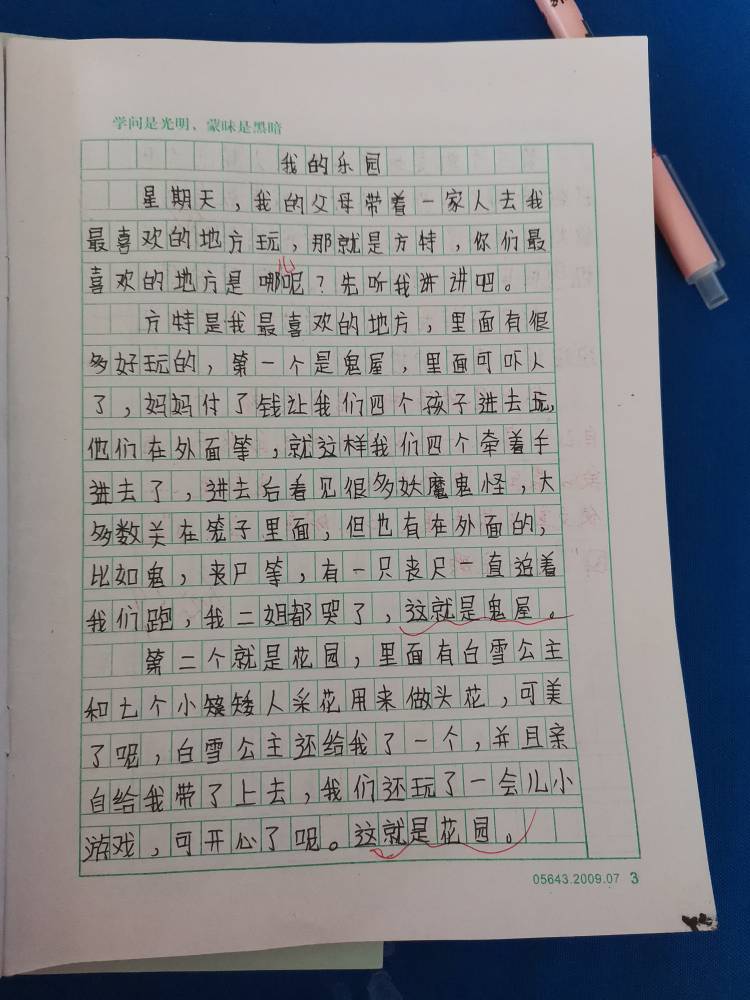 学问是光明、蒙昧是黑暗
我的乐园
星期天，我的父母带着一家人去我
最喜欢的地方玩，那就是方特，你们最
儿
喜欢的地方是哪呢？先听我讲讲吧。
方特是我最喜欢的地方，里面有很
多好玩的，第一个是鬼屋，里面可吓人
了，妈妈付了钱让我们四个孩子进去玩，
他们在外面等，就这样我们四个牵着手
进去了，进去后看见很多妖魔鬼怪，大
多数关在笼子里面，但也有在外面的，
比如鬼，丧尸等，有一只丧尸一直追着
我们跑，我二姐都哭了，这就是鬼屋。
第二个就是花园，里面有白雪公主
和七个小矮人采花用来做头花，可美
了呢，白雪公主还给我了一个，并且亲
自给我带了上去，我们还玩了一会儿小
游戏，可开心了呢。这就是花园。
05643.2009.07 3